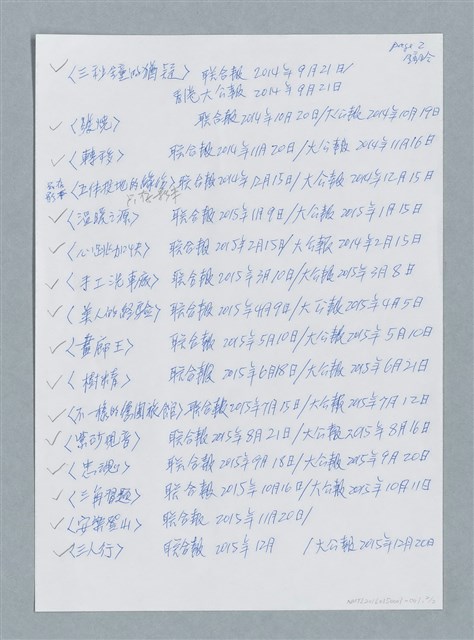 page 2
✓〈三秒鐘的猶疑〉 联合報 2014年9月21日/
香港大公報 2014年9月21日
✓〈發燒〉 联合報2014年10月20日/大公報2014年10月19日
✓〈轉彎〉 联合報2014年11月20日/大公報2014年11月16日
〈五体投地的 〉联合報2014年12月15日/大公報2014年12月15日
✓〈温暖之源〉 联合報2015年1月9日/大公報2015年1月15日
✓〈心跳加快〉 联合報2015年2月15日/大公報2014年2月15日
✓〈手工洗車廠〉 联合報2015年3月10日/大公報2015年3月8日
✓〈 人的經驗〉 联合報2015年4月9日/大公報2015年4月5日
✓〈 王〉 联合報2015年5月10日/大公報2015年5月10日
✓〈樹 〉 联合報2015年6月18日/大公報2015年6月21日
✓〈不一樣的 旅館〉联合報2015年7月15日/大公報2015年7月12日
✓〈紫砂 〉 联合報2015年8月21日/大公報2015年8月16日
✓〈忠魂〉 联合報2015年9月18日/大公報2015年9月20日
✓〈三角習題〉 联合報2015年10月16日/大公報2015年10月11日
✓〈安樂登山〉 联合報2015年11月20日/
✓〈三人行〉 联合報2015年12月 /大公報2015年12月20日